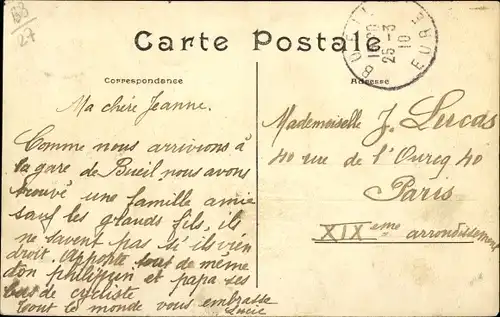 88
27
Carte Postale
BUEIL
10
25-3
10
EURE
Correspondance
Adresse
Ma chère Jeanne.
Comme nous arrivions à
la gare de Bueil nous avons
trouvé une famille amie
sauf les grands fils, ils
ne savent pas si ils vien
droit. Apporte tout de même
ton philippin et papa ses
bas de cycliste
tout le monde vous embrasse
Lucie
Mademoiselle J. Lucas
40 rue de l'Ourcq 40
Paris
XIX eme arrondissement